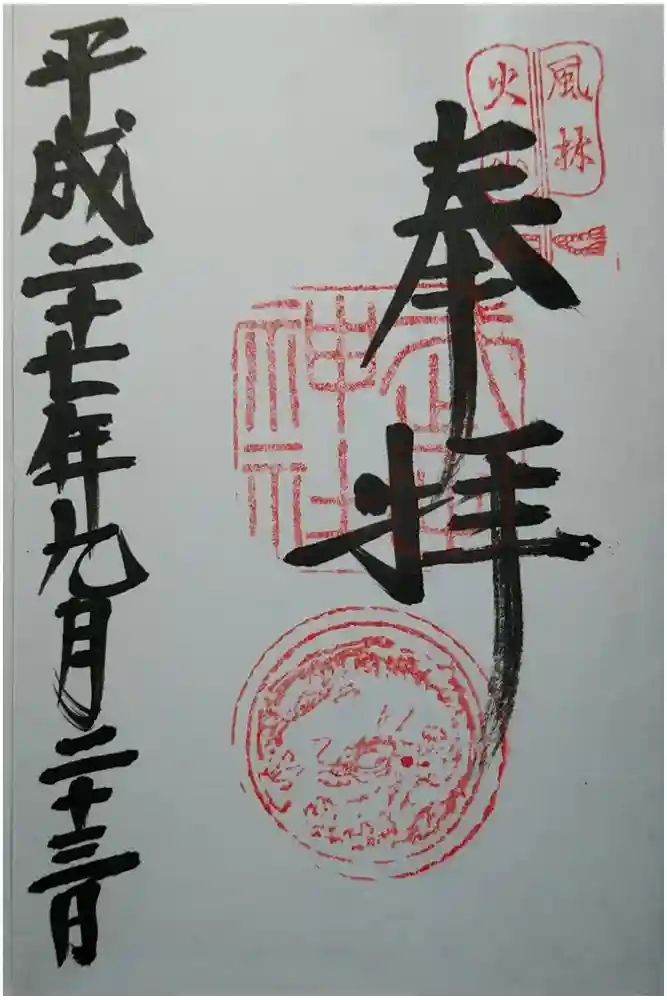 風林
火山
奉拝
武田
神社
平成二十七年九月二十三日